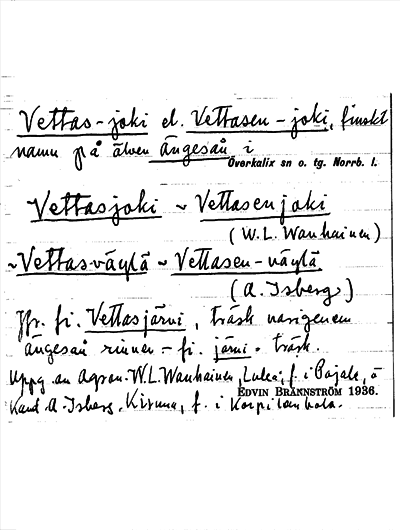 Vettas-joki el. Vettasen-joki, finskt
namn på älven ängesån i
Överkalix sn o. tg. Norrb. l.
Vettasjoki ~ Vettasenjoki
(W.L. Wanhainen)
~Vettasväylä ~ Vettasen-väylä
(A. Isberg)
Jfr. fi. Vettasjärvi, träsk varigenom
ängesån rinner - fi. järvi = träsk.
Uppg av Agron. W.L. Wanhainen, Luleå, f. i Pajala, o
Kand A. Isberg, Kiruna, f. i Korpilombolo.
EDVIN BRÄNNSTRÖM 1936.